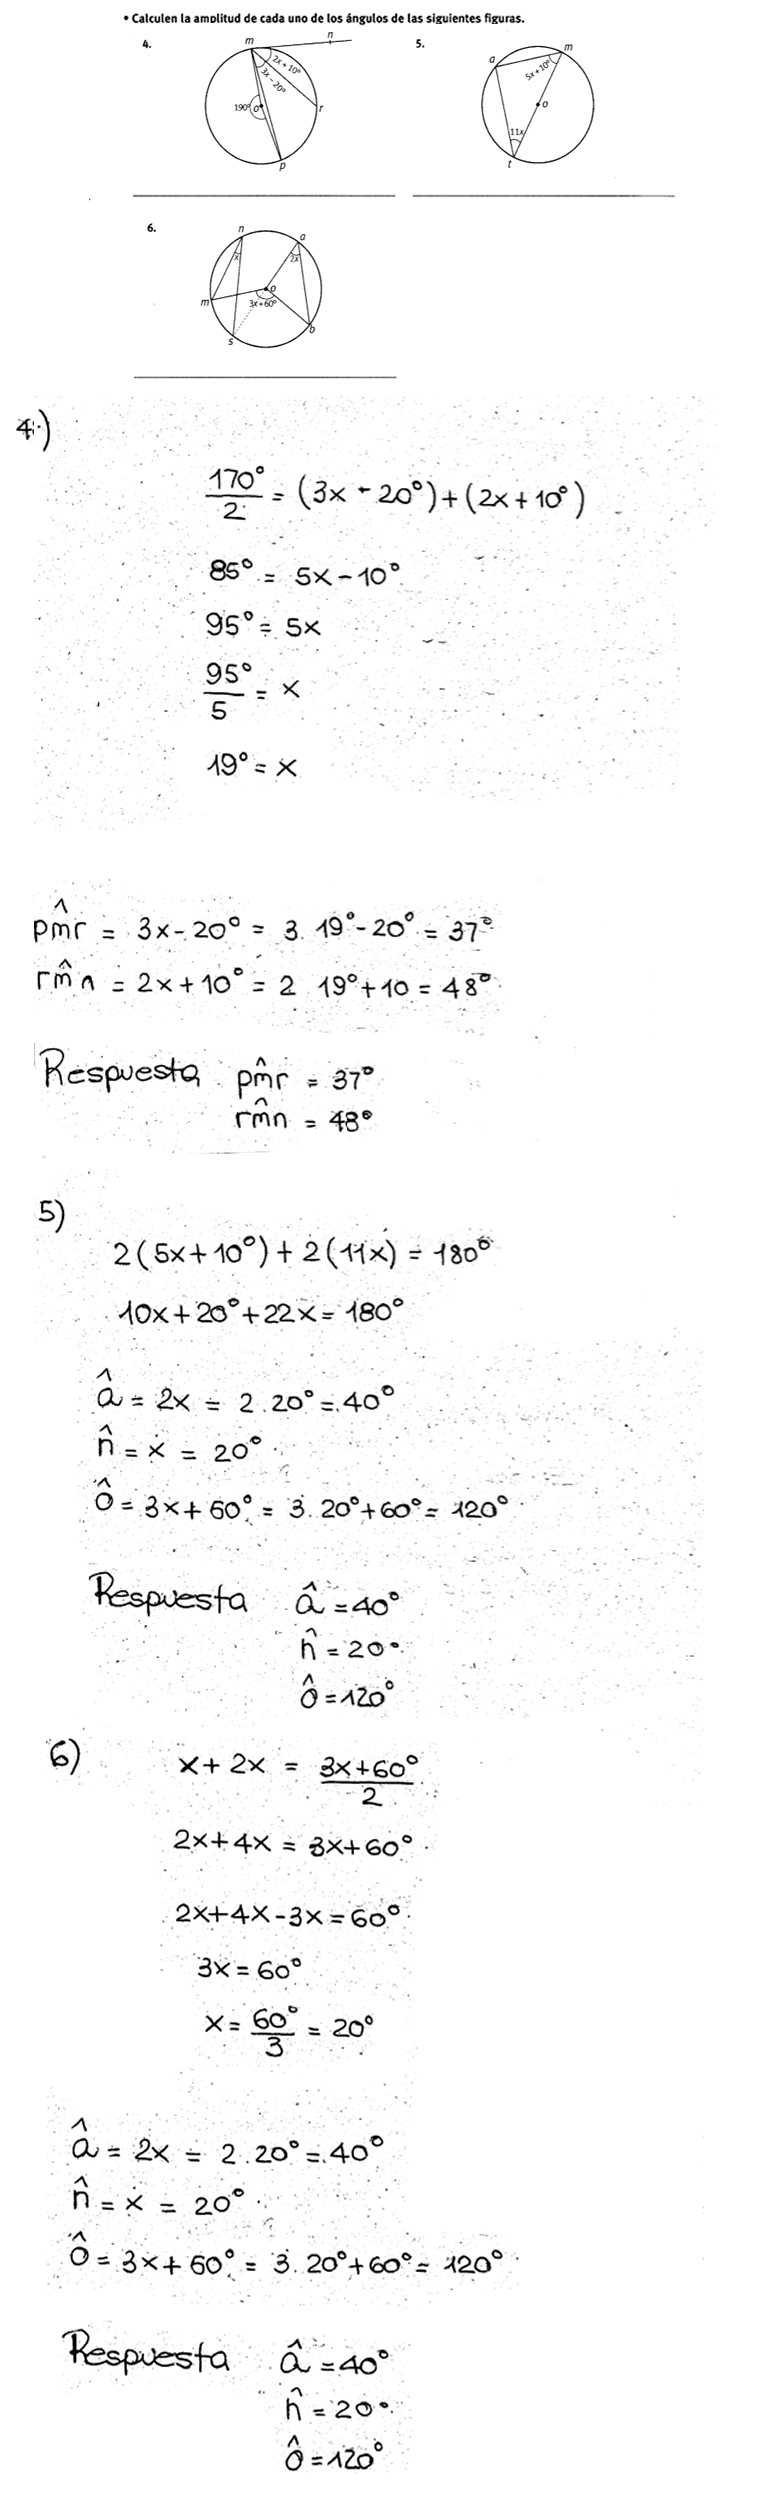 • Calculen la amplitud de cada uno de los ángulos de las siguientes figuras.
4.
m
n
2x + 10°
3x – 20°
190°
o
r
p
5.
a
m
5x + 10°
o
11x
t
6.
n
a
x
2x
o
m
3x + 60°
s
b
4.)
170°/2 = (3x - 20°) + (2x + 10°)
85° = 5x - 10°
95° = 5x
95°/5 = x
19° = x
pm̂r = 3x - 20° = 3. 19° - 20° = 37°
rm̂n = 2x + 10° = 2 19° + 10 = 48°
Respuesta pm̂r = 37°
rm̂n = 48°
5)
2(5x + 10°) + 2(11x) = 180°
10x + 20° + 22x = 180°
â = 2x = 2.20° = 40°
n̂ = x = 20°
ô = 3x + 60° = 3.20° + 60° = 120°
Respuesta â = 40°
n̂ = 20°
ô = 120°
6)
x + 2x = 3x + 60°/2
2x + 4x = 3x + 60°
2x + 4x - 3x = 60°
3x = 60°
x = 60°/3 = 20°
â = 2x = 2.20° = 40°
n̂ = x = 20°
ô = 3x + 60° = 3.20° + 60° = 120°
Respuesta â = 40°
n̂ = 20°
ô = 120°